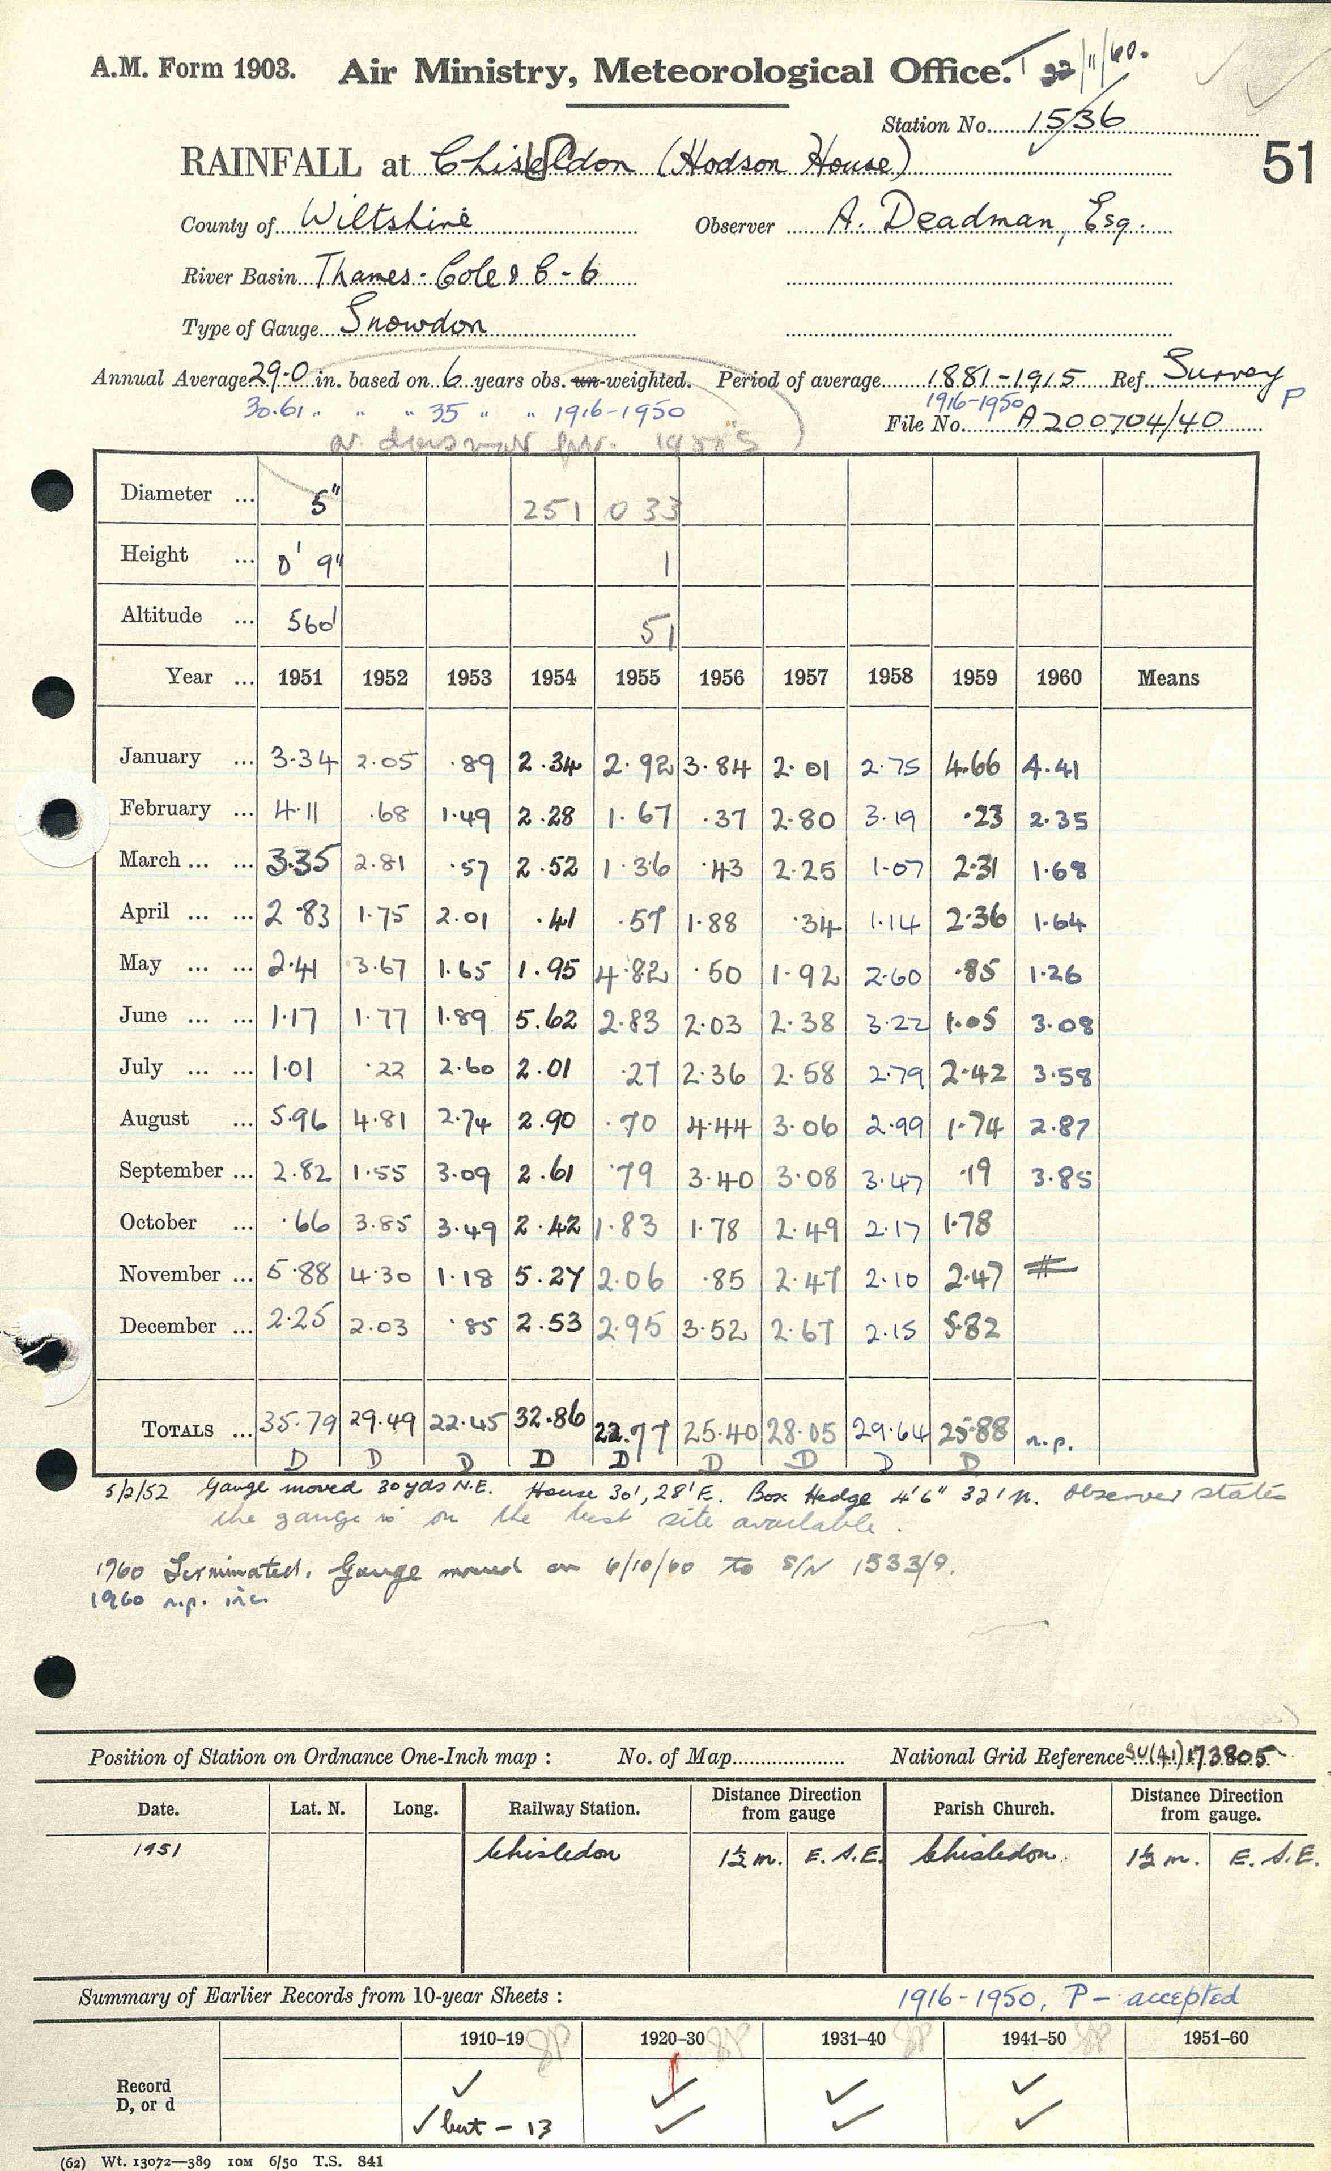 A.M. Form 1903. Air Ministry, Meteorological Office. T 22/11/60.
Station No. 1536
51
RAINFALL at Chiseldon (Hodson House)
County of Wiltshire Observer A. Deadman, Esq.
River Basin Thames - Cole & C - 6
Type of Gauge Snowdon
Annual Average 29.0 in. based on 6 years obs. un-weighted. Period of average 1881-1915 Ref. Survey P
30.61 " " " 35 " " 1916-1950 1916-1950
File No. A200704/40
1950's
Diameter ... 5" 251 033
Height ... 0' 9" 1
Altitude ... 560' 51
Year ... 1951 1952 1953 1954 1955 1956 1957 1958 1959 1960 Means
January ... 3.34 2.05 .89 2.34 2.92 3.84 2.01 2.75 4.66 4.41
February ... 4.11 .68 1.49 2.28 1.67 .37 2.80 3.19 .23 2.35
March ... ... 3.35 2.81 .57 2.52 1.36 .43 2.25 1.07 2.31 1.68
April ... ... 2.83 1.75 2.01 .41 .57 1.88 .34 1.14 2.36 1.64
May ... ... 2.41 3.67 1.65 1.95 4.82 .50 1.92 2.60 .85 1.26
June ... ... 1.17 1.77 1.89 5.62 2.83 2.03 2.38 3.22 1.05 3.08
July ... ... 1.01 .22 2.60 2.01 .27 2.36 2.58 2.79 2.42 3.58
August ... 5.96 4.81 2.74 2.90 .70 4.44 3.06 2.99 1.74 2.87
September ... 2.82 1.55 3.09 2.61 .79 3.40 3.08 3.47 .19 3.85
October ... .66 3.85 3.49 2.42 1.83 1.78 2.49 2.17 1.78
November ... 5.88 4.30 1.18 5.27 2.06 .85 2.47 2.10 2.47
December ... 2.25 2.03 .85 2.53 2.95 3.52 2.67 2.15 5.82
TOTALS ... 35.79 29.49 22.45 32.86 22.77 25.40 28.05 29.64 25.88 n.p.
D D D D D D D D D
5/2/52 Gauge moved 30yds N.E. House 30', 28' E. Box Hedge 4'6" 32' N. Observer states
the gauge is on the best site available.
1960 Terminated. Gauge moved on 6/10/60 to S/N 1533/9.
1960 n.p. inc.
Position of Station on Ordnance One-Inch map : No. of Map National Grid Reference SU(41)173805
Date. Lat. N. Long. Railway Station. Distance Direction from gauge Parish Church. Distance Direction from gauge.
1951 Chisledon 1½ m. E. S.E. Chisledon 1½ m. E. S.E.
Summary of Earlier Records from 10-year Sheets : 1916-1950, P - accepted
1910–19 1920–30 1931–40 1941–50 1951–60
Record D, or d ✓ ✓ ✓ ✓
✓ but - 13 ✓ ✓ ✓
(62) Wt. 13072—389 10M 6/50 T.S. 841